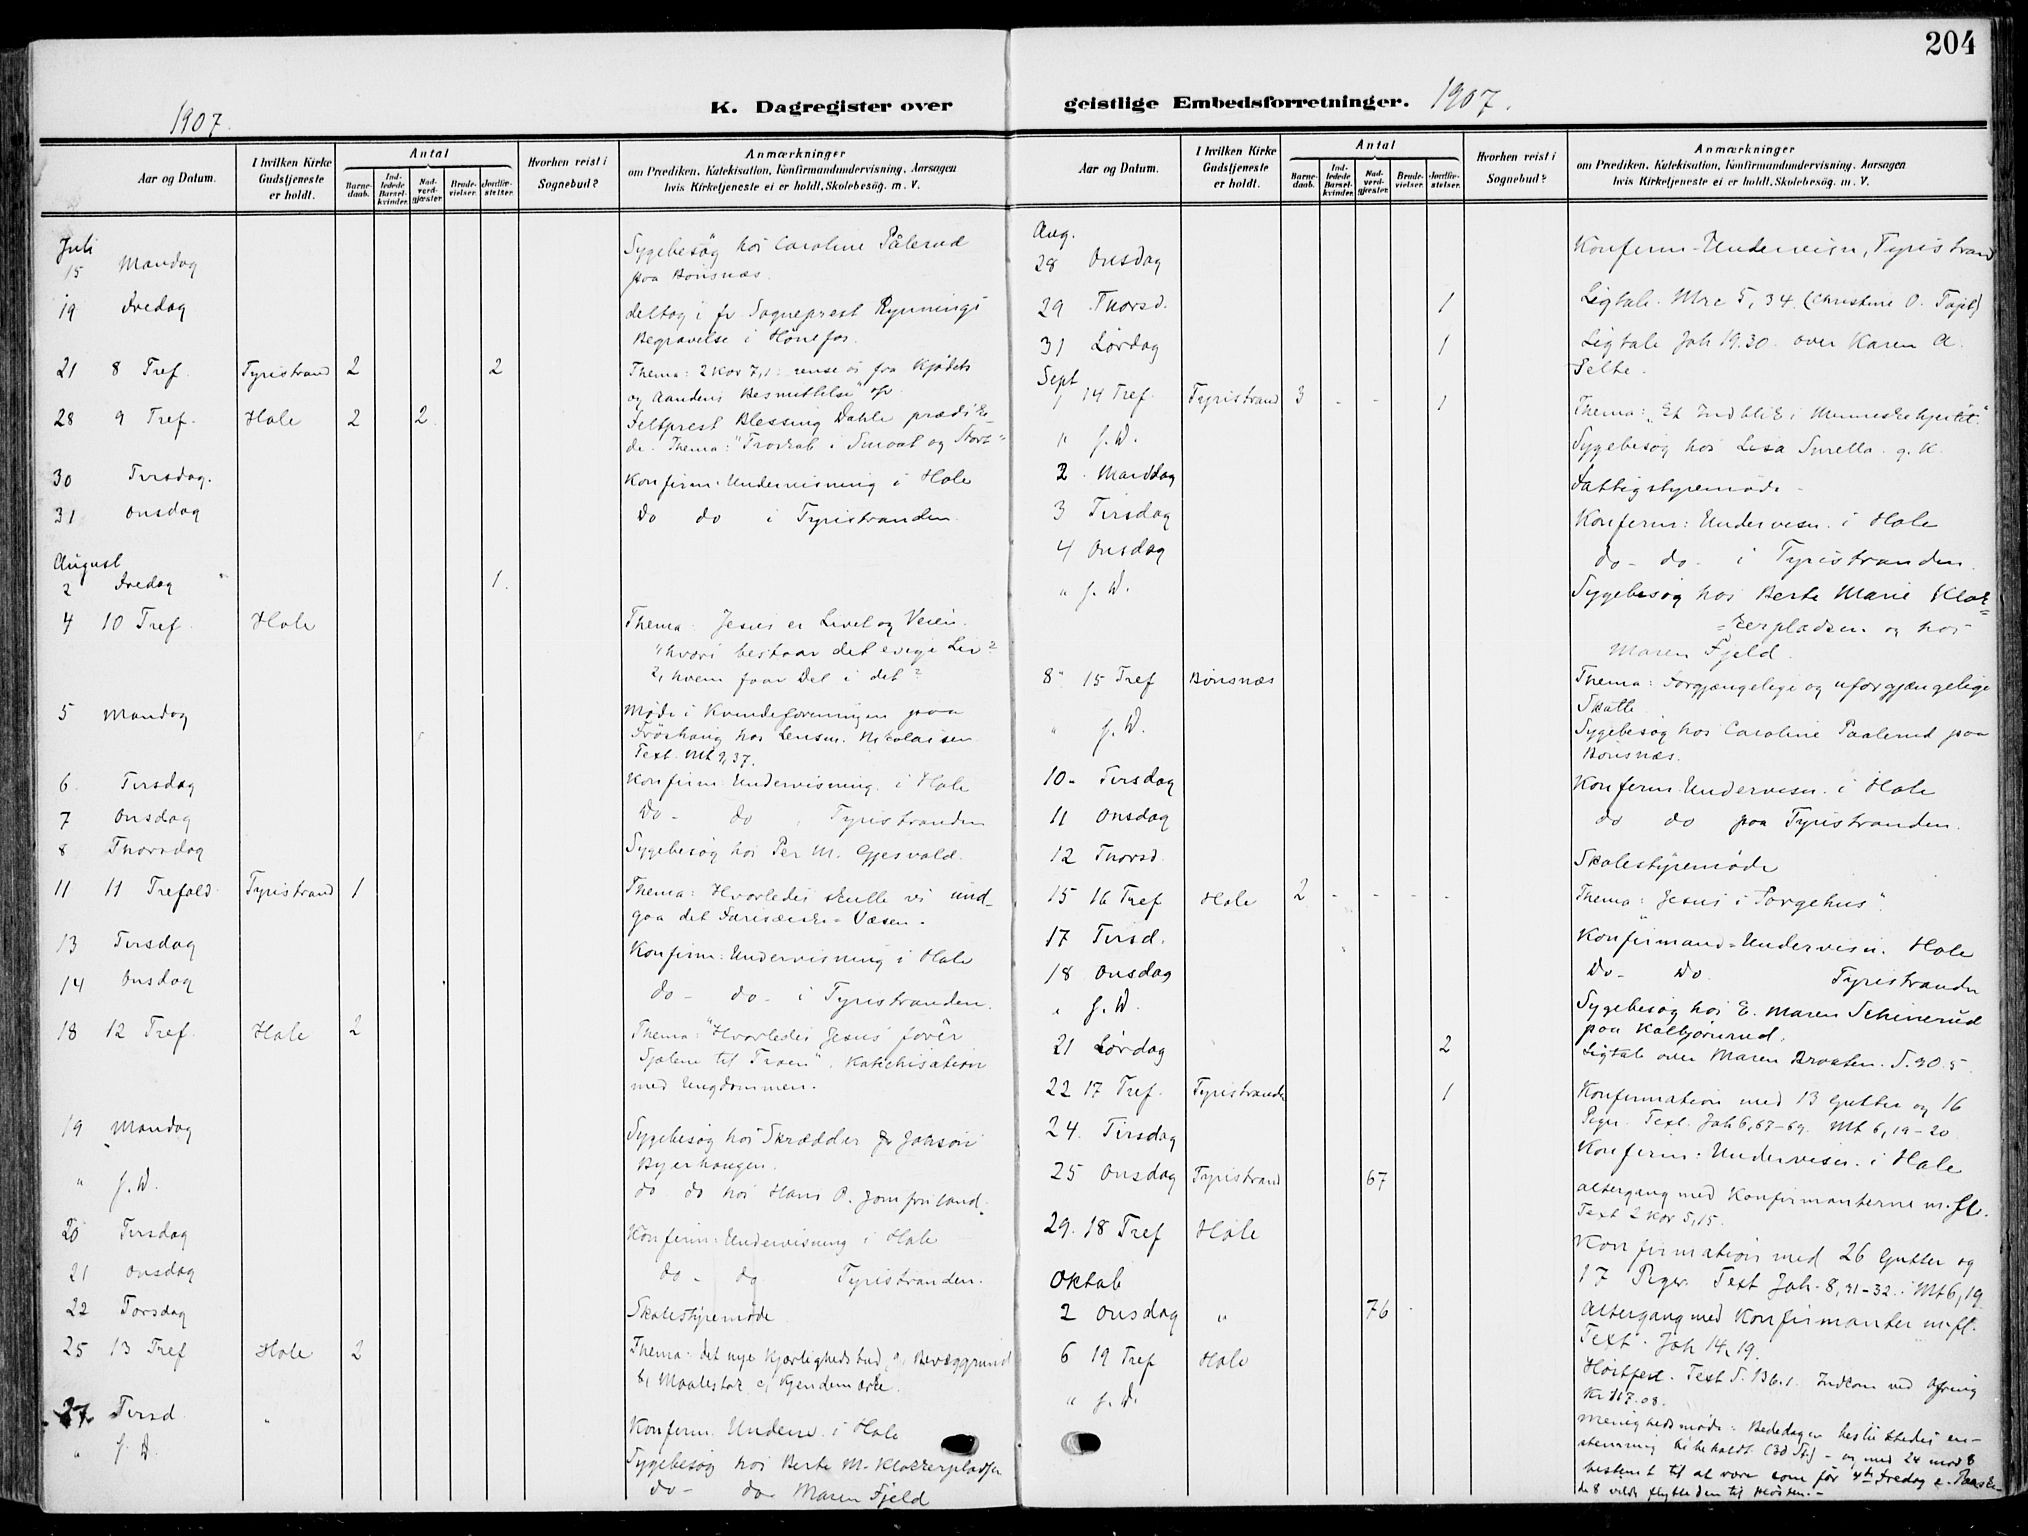 204
K. Dagregister over
1907.
Aar og Datum.
I hvilken Kirke Gudstjeneste er holdt.
Antal
Barnedaab.
Indledede Barselkvinder.
Nadverdgjæster.
Brudevielser.
Jordfæstelser.
Hvorhen reist i Sognebud?
Anmærkninger
om Prædiken, Katekisation, Konfirmandundervisning, Aarsagen
hvis Kirketjeneste ei er holdt, Skolebesög. m. V.
Juli
15 Mandag Sygebesøg hos Caroline Pålerud
paa Bønsnæs.
19 Fredag deltog i fv Sogneprest Rynnings
Begravelse i Hönefos.
21 8 Tref. Tyristrand 2 2 Thema: 2 Kor 7,1: rense os fra Kjødets
og Aandens Besmittelse"
28 9 Tref. Hole 2 2. Feltprest Blessing Dahle prædike-
de. Thema: "Troskab i Smaat og Stort"
30 Tirsdag. Konfirm: Undervisning i Hole
31 Onsdag Do do i Tyristranden.
August
2 Fredag 1.
4 10 Tref. Hole Thema: Jesus er Livet og Veien.
1, hvori bestaar det evige Liv?
2, hvem faar Del i det?
5 Mandag Møde i Kvindeforeningen paa
Frøshaug hos Lensm. Nikolaisen
Text. Mt 9,37.
6. Tirsdag Konfirm: Undervisning. i Hole
7 Onsdag Do - do Tyristranden
8 Thorsdag Sygebesøg hos Per M. Gjesvold.
11 11 Trefold. Tyristrand 1 Thema: Hvorledes skulle vi und-
gaa det Farisæiske Væsen.
13 Tirsdag Konfirm: Undervisning i Hole
14 Onsdag do - do - i Tyristranden.
18 12 Tref. Hole 2 Thema: "Hvorledes Jesus fører
Sjælene til Troen". Katechisation
med Ungdommen.
19 Mandag Sygebesøg hos Skrædder
Byerhaugen.
" s. D. do do hos Hans O. Jomfruland.
20 Tirsdag Konfirm: Undervisning i Hole
21 Onsdag do - do Tyristranden.
22 Torsdag Skolestyremøde.
25 13 Tref Hole 2 Thema: det nye Kjærlighedsbud, a, Bevæggrund
b, Maalestok c, Kjendemærke.
27. Tirsd. Konfirm. Underv. i Hole
" s. D. Sygebesøg hos Berte M. Klokkerpladsen
do - do Maren Fjeld
geistlige Embedsforretninger. 1907.
Aar og Datum.
I hvilken Kirke Gudstjeneste er holdt.
Antal
Barnedaab.
Indledede Barselkvinder.
Nadverdgjæster.
Brudevielser.
Jordfæstelser.
Hvorhen reist i Sognebud?
Anmærkninger
om Prædiken, Katekisation, Konfirmandundervisning, Aarsagen
hvis Kirketjeneste ei er holdt, Skolebesög. m. V.
Aug.
28 Onsdag Konfirm-Undervisn, Tyristrand
29 Thorsd. 1 Ligtale. Mrc 5, 34. (Christine O.
31 Lørdag 1 Ligtale Joh 19.30. over Karen A.
Selte.
Sept
1 14 Tref. Tyristrand 3 - - 1 Thema: "Et Indblik i Menneskehjertet".
" s. D. Sygebesøg hos Lisa
2. Mandag Fattigstyremøde -
3 Tirsdag Konfirm: Undervisn. i Hole
4 Onsdag do - do - i Tyristranden.
" s. D. Sygebesøg hos Berte Marie Klok-
kerpladsen og hos
Maren Fjeld.
8" 15 Tref Bönsnæs Thema: Forgjængelige og uforgjængelige
Skatte
" s. D. Sygebesøg hos Caroline Paalerud paa
Bönsnæs.
10 - Tirsdag Konfirm. Undervisn. i Hole
11 Onsdag do do paa Tyristranden.
12 Thorsd. Skolestyremøde
15 16 Tref Hole 2 - - - - Thema: "Jesus i Sorgehus".
17 Tirsd. Konfirmand-Undervisn. Hole
18 Onsdag Do - Do Tyristranden
" s. D. Sygebesøg hos E. Maren Schinerud
paa Kolbjørnrud.
21 Lørdag 2 Ligtale over Maren Braaten. S. 90.5.
22 17 Tref. Tyristranden 1 Konfirmation med 13 Gutter og 16
Piger. Text. Joh 6,67-69. Mt 6,19-20
24. Tirsdag Konfirm: Undervisn. i Hole
25 Onsdag Tyristrand 67 Altergang med Konfirmanterne m. fl.
Text 2 Kor 5,15.
29. 18 Tref Hole Konfirmation med 26 Gutter og
17 Piger. Text Joh. 8,31-32. Mt 6,19
Oktob
2 Onsdag " 76 Altergang med Konfirmanter m. fl.
Text: Joh 14,19.
6 19 Tref Hole Høstfest. Text S. 136.1. Indkom ved Ofring
Kr 117.08.
" s. D. Menighedsmøde: Bededagen besluttedes en-
stemmig bibeholdt (32 St) - og med 24 mod 8
bestemt til at være som før 4de Fredag e. Paaske
de 8 vilde flytte den til Høsten. -